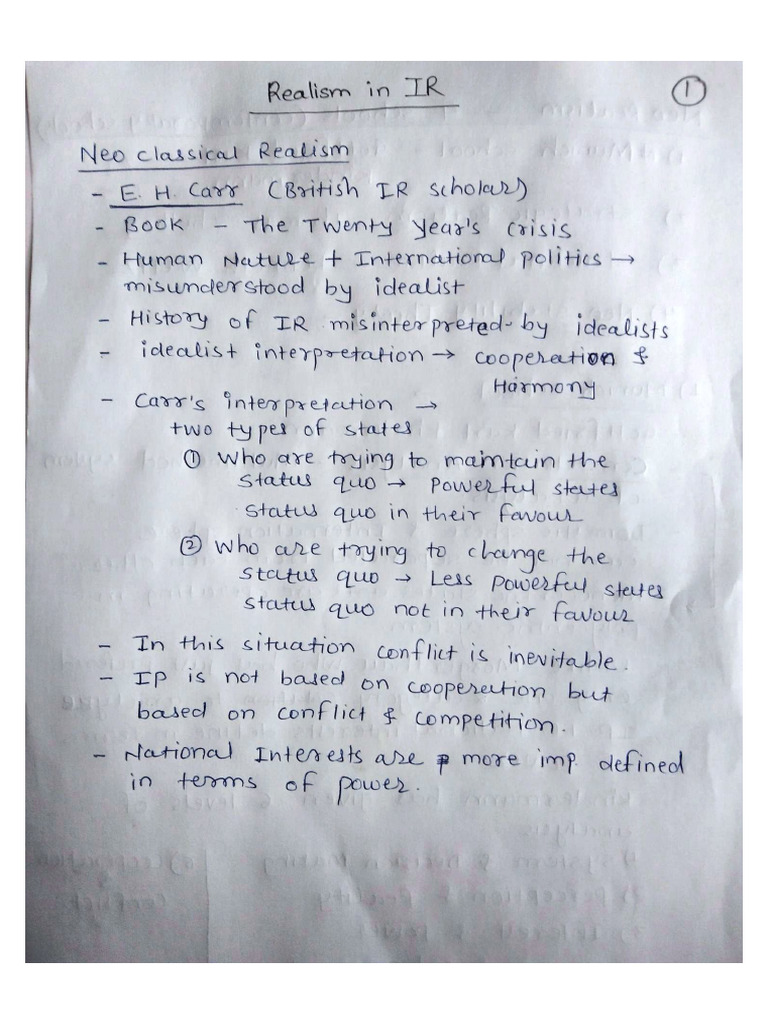 Realism in IR
①
Neo classical Realism
- E. H. Carr (British IR scholar)
- Book - The Twenty Year's Crisis
- Human Nature + International politics →
misunderstood by idealist
- History of IR misinterpreted by idealists
- idealist interpretation → cooperation &
Harmony
- Carr's interpretation →
two types of states
① who are trying to maintain the
status quo → powerful states
status quo in their favour
② who are trying to change the
status quo → Less powerful states
status quo not in their favour
- In this situation conflict is inevitable.
- IP is not based on cooperation but
based on conflict & competition.
- National Interests are more imp. defined
in terms of power.